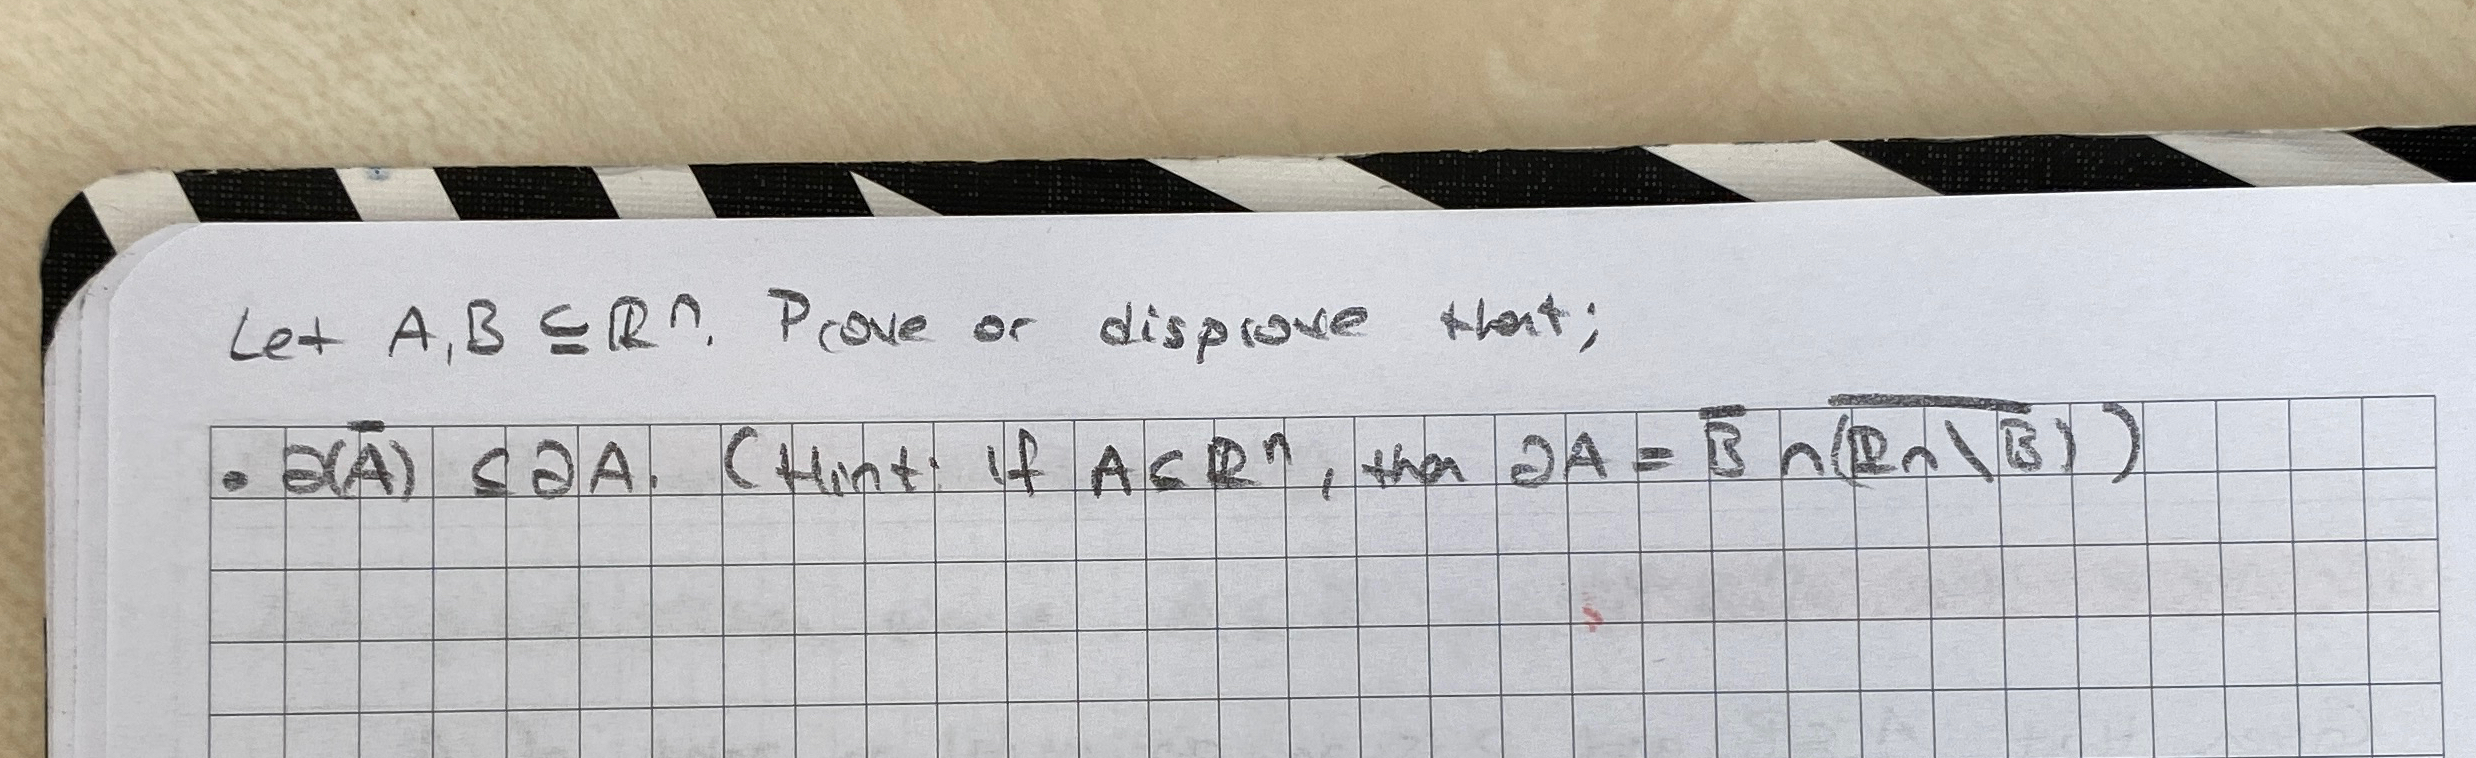 Let A,B ⊆ ℝⁿ. Prove or disprove that;
• ∂(A̅) ⊆ ∂A. (Hint: if A⊂ℝⁿ, then ∂A = B̅ ∩ (\overline{ℝn\B}))